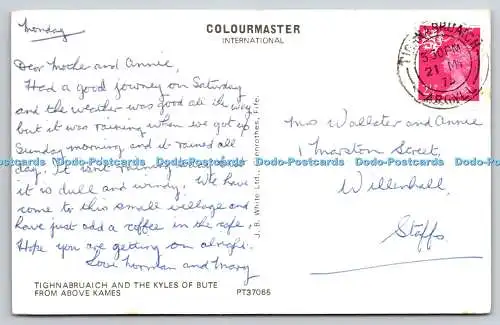 Monday
COLOURMASTER
INTERNATIONAL
Dear Mothe and Annie,
Had a good journey on Saturday
and the weather was good all the way
but it was raining when we got up
Sunday morning and it rained all
day. It isn't raining
it is dull and windy. We have
come to this small village and
have just add a coffee in the cafe,
Hope you are getting on alright.
Love Norman and Mary
TIGHNABRUAICH AND THE KYLES OF BUTE
FROM ABOVE KAMES
PT37065
J. B. White Ltd., Fife.
TIGHNABRUAICH
5 30 PM
21
ARGYLL
Mrs Wallater and Annie
1 Marston Street,
Willenhall,
Staffs
Dodo-Postcards Dodo-Postcards Dodo-Postcards Dodo-Postcards Dodo-Postcards Dodo-Postcards